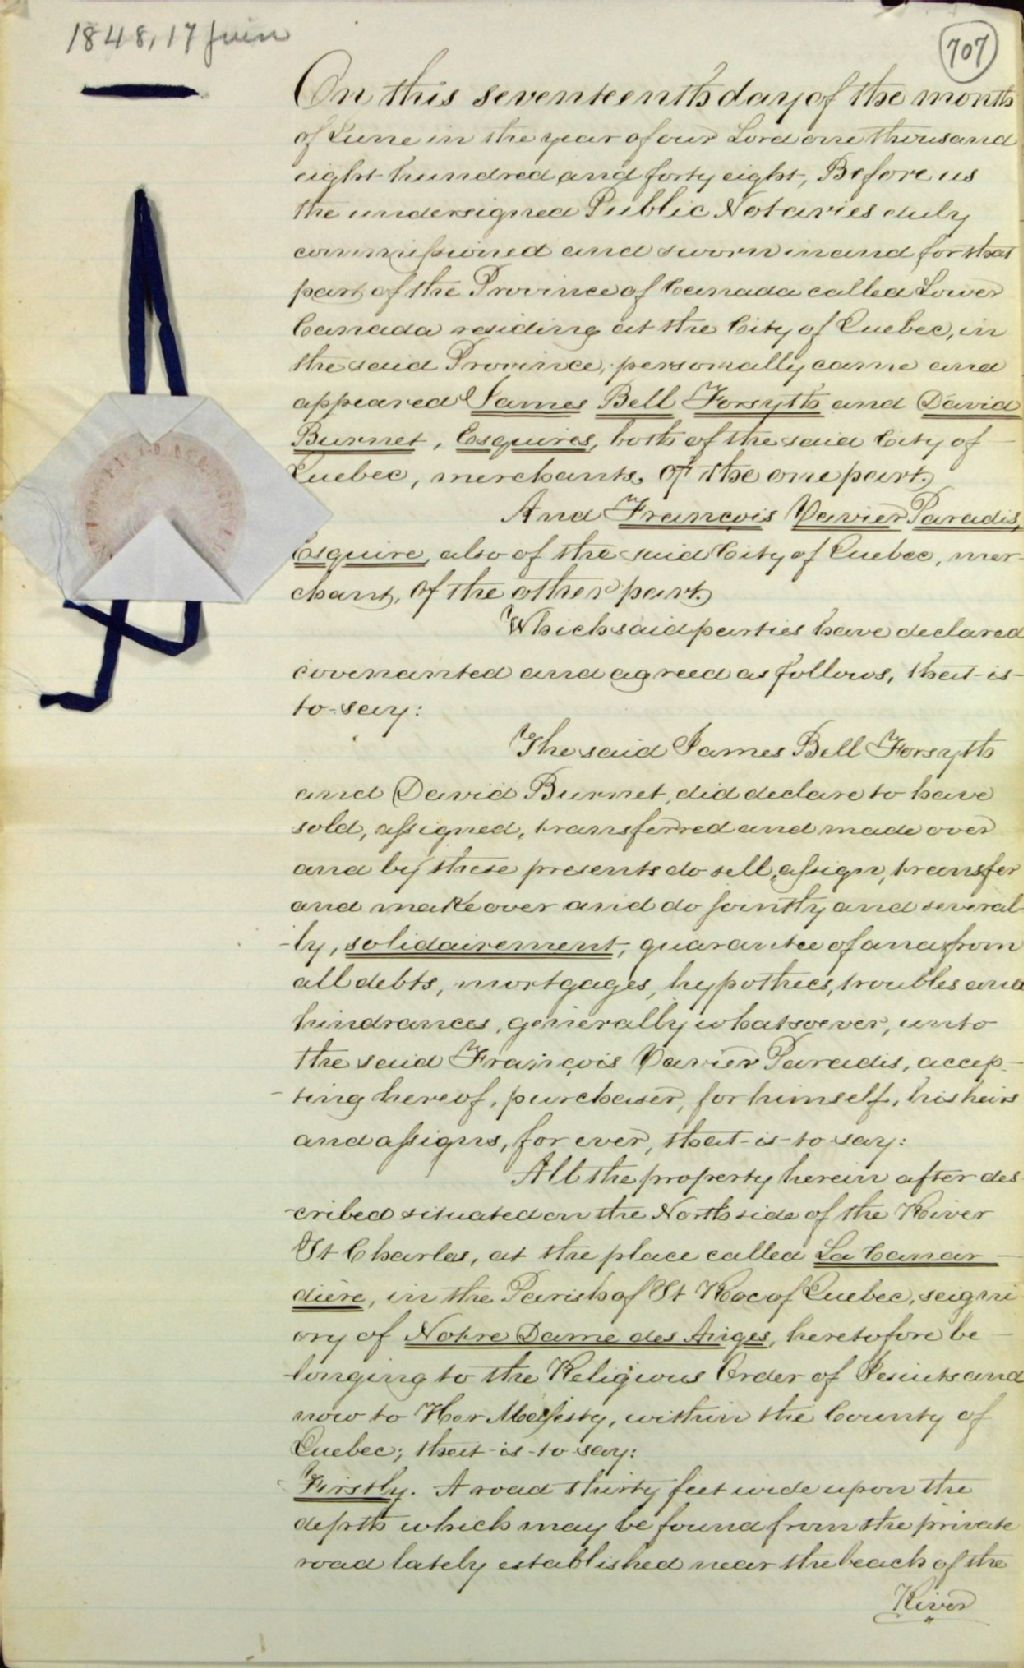 1848, 17 Juin
707
On this seventeenth day of the month
of June in the year of our Lord one thousand
eight hundred and forty eight, Before us
the undersigned Public Notaries duly
commissioned and sworn in and for that
part of the Province of Canada called Lower
Canada residing at the City of Quebec, in
the said Province, personally came and
appeared James Bell Forsyth and David
Burnet, Esquires, both of the said City of
Quebec, merchants, of the one part,
And François Xavier Paradis,
Esquire, also of the said City of Quebec, mer-
chant, of the other part.
Which said parties have declared
covenanted and agreed as follows, that-is-
to-say:
The said James Bell Forsyth
and David Burnet, did declare to have
sold, assigned, transferred and made over
and by these presents do sell, assign, transfer
and make over and do jointly and several-
-ly, solidairement, guarantee of and from
all debts, mortgages, hypothecs, troubles and
hindrances, generally whatsoever, unto
the said François Xavier Paradis, accep-
-ting hereof, purchaser, for himself, his heirs
and assigns, for ever, that-is-to-say:
All the property herein after des-
-cribed situated on the North side of the River
St Charles, at the place called La Canar-
dière, in the Parish of St Roc of Quebec, seigni-
ory of Notre Dame des Anges, heretofore be-
-longing to the Religious Order of Jesuits and
now to Her Majesty, within the County of
Quebec; that-is-to-say:
Firstly. A road thirty feet wide upon the
depth which may be found from the private
road lately established near the beach of the
River